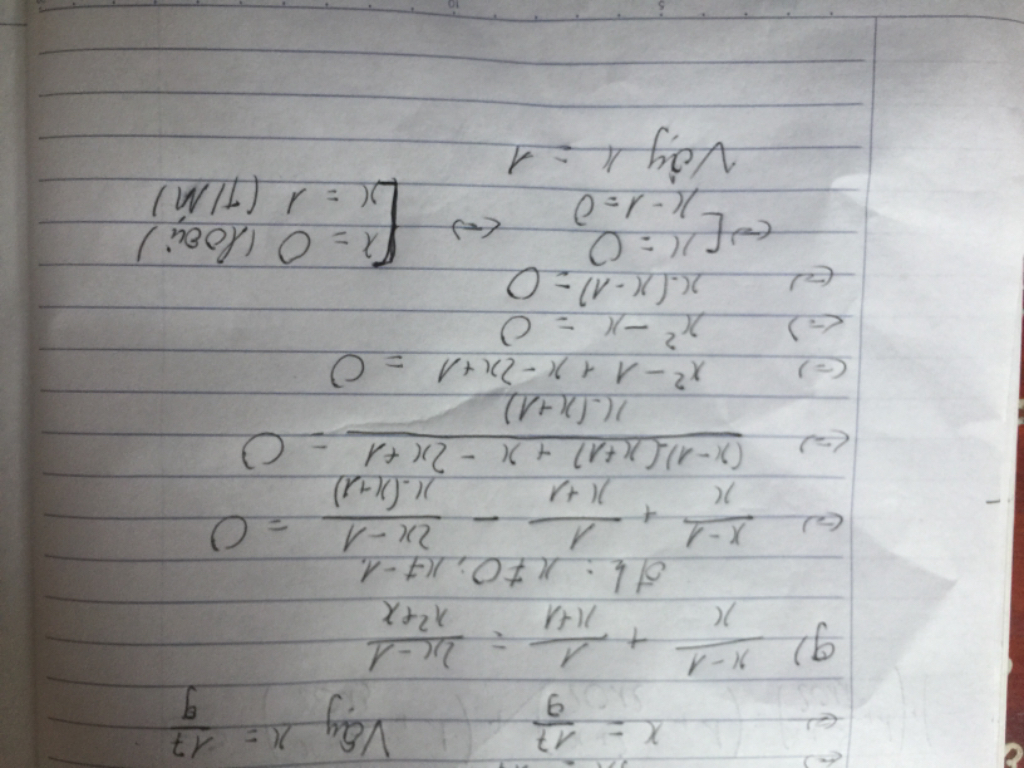 x = 17/9 Vậy x = 17/9
g) (x-1)/x + 1/(x+1) = (2x-1)/(x²+x)
đk : x ≠ 0; x ≠ -1.
(=) (x-1)/x + 1/(x+1) - (2x-1)/(x.(x+1)) = 0
(=) ((x-1)(x+1) + x - 2x+1)/(x.(x+1)) = 0
(=) x² - 1 + x - 2x+1 = 0
(=) x² - x = 0
(=) x.(x-1) = 0
(=) [ x = 0 (=) [ x = 0 (loại)
x - 1 = 0 x = 1 (T/M)
Vậy x = 1